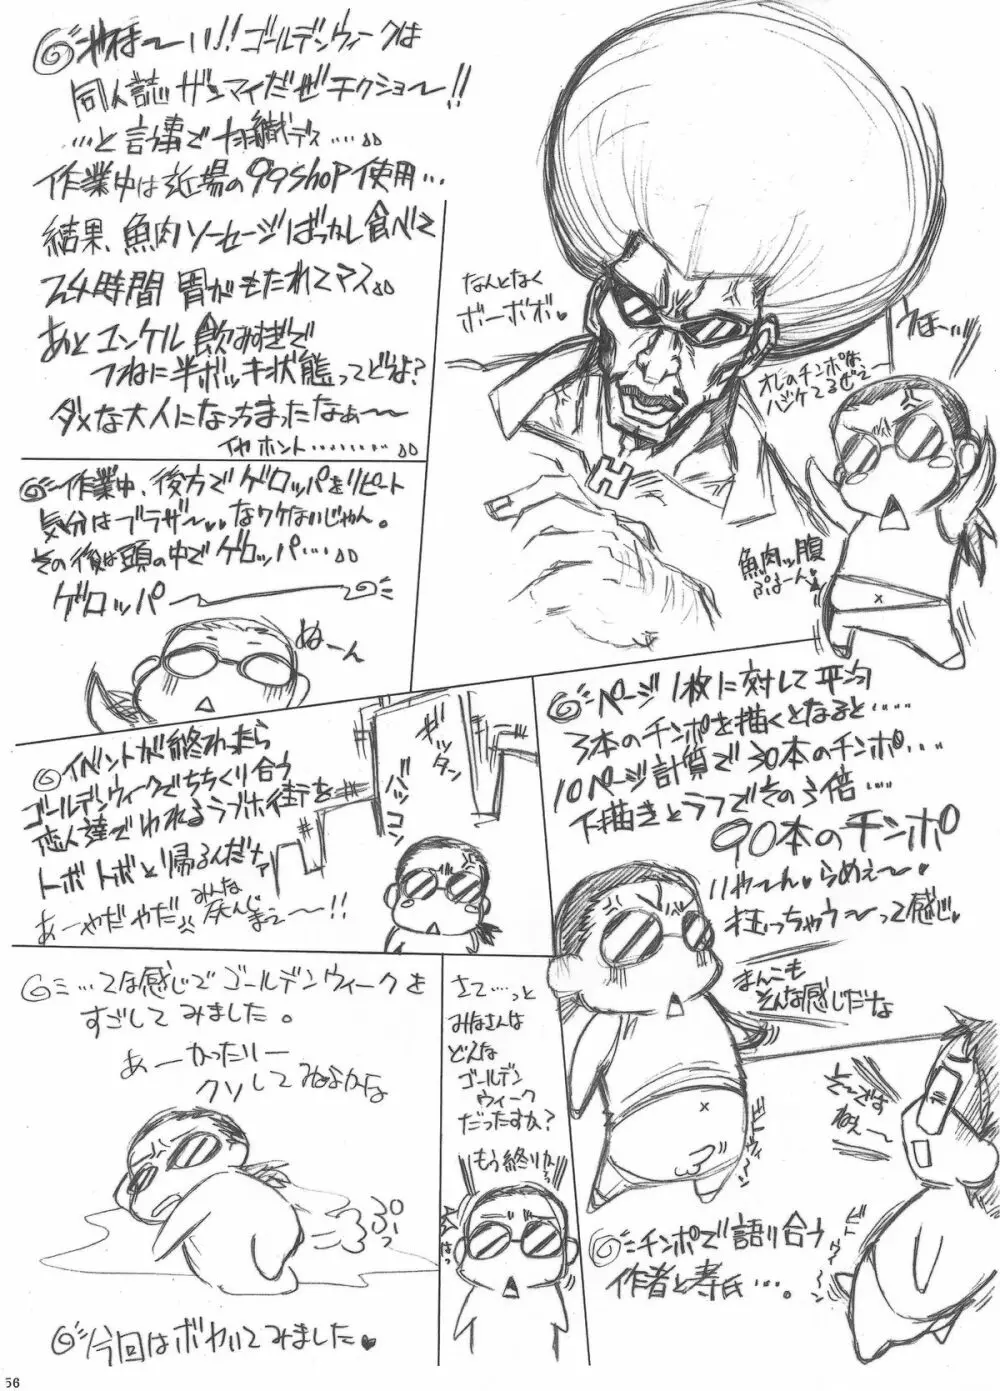 やほ〜い!!ゴールデンウィークは
同人誌ザンマイだぜチクショ〜!!
…と言う事で 羽織デス……
作業中は近場の99shop使用…
結果、魚肉ソーセージばっかし食べて
24時間 胃がもたれてマス。
あと ユンケル 飲みすぎで
つねに半ボッキ状態ってどうよ?
ダメな大人になっちまったなぁ〜〜
イヤ ホント………
なんとなく
ボーボボ♥
うほー…ッ
オレのチンポは
ハジケてるぜェ〜
魚肉ッ腹
ぷよーん♥
作業中、後方でゲロッパをリピート
気分はブラザ〜♥♥なワケないじゃん。
その後は頭の中でゲロッパ…
ゲロッパ
ぬーん
イベントが終わったら
ゴールデンウィークでちちくり合う
恋人達であふれるラブホ街を
トボトボと帰るんだナァ
あーやだやだ
みんな
灰んじまえ〜〜!!
ギッタン
バッコン
ページ1枚に対して平均
3本のチンポを描くとなると……
10ページ計算で30本のチンポ…
下描きとラフでその3倍……
90本のチンポ
りゃ〜ん♥らめぇ〜♥
狂っちゃう〜って感じ♥
まんこも
そんな感じだな
そ〜ですねぇ〜
チンポで語り合う
作者と寿氏…。
…てな感じでゴールデンウィークを
すごしてみました。
あーかったりー
クソしてねよかな
ぷぅっ
今回はボヤいてみました♥
さて…っと
みなさんは
どえな
ゴールデン
ウィーク
だったすか?
もう終りかよっ
56